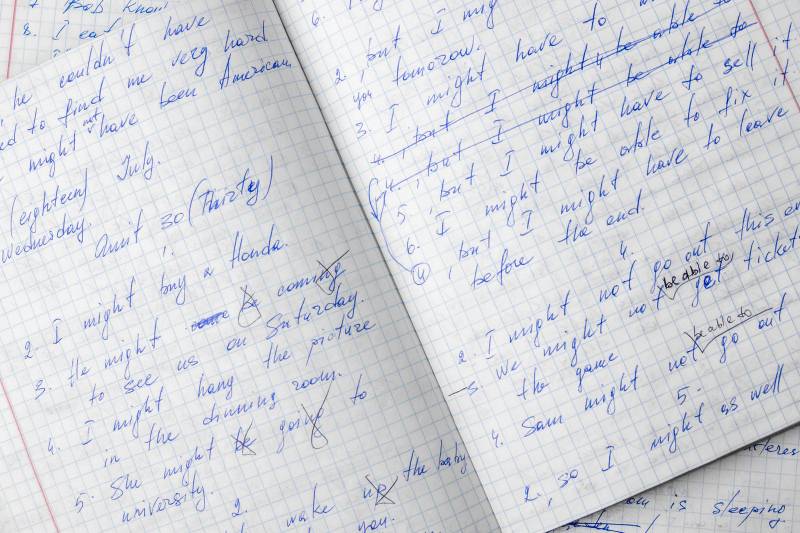 Bob know
8. I eat
he couldn't have
ed to find me very hard
might not have been American
(eighteen) July.
Wednesday
Unit 30 (Thirty)
1.
2 I might buy a Honda.
3. He might be coming
to see us on Saturday.
4. I might hang the picture
in the dinning room.
5. She might be going to
university.
2.
wake up the baby
you.
6.
2. , but I mig
you tomorrow.
3. I might have to
4. , but I might be able to
4. , but I might be able to
5. , but I might have to sell it
6. I might be able to fix it
4 , but I might have to leave
before the end.
4.
2. I might not go out this ev
3. We might not be able to get ticket
the game
4. Sam might not be able to go out
5.
2. , so I might as well
is sleeping